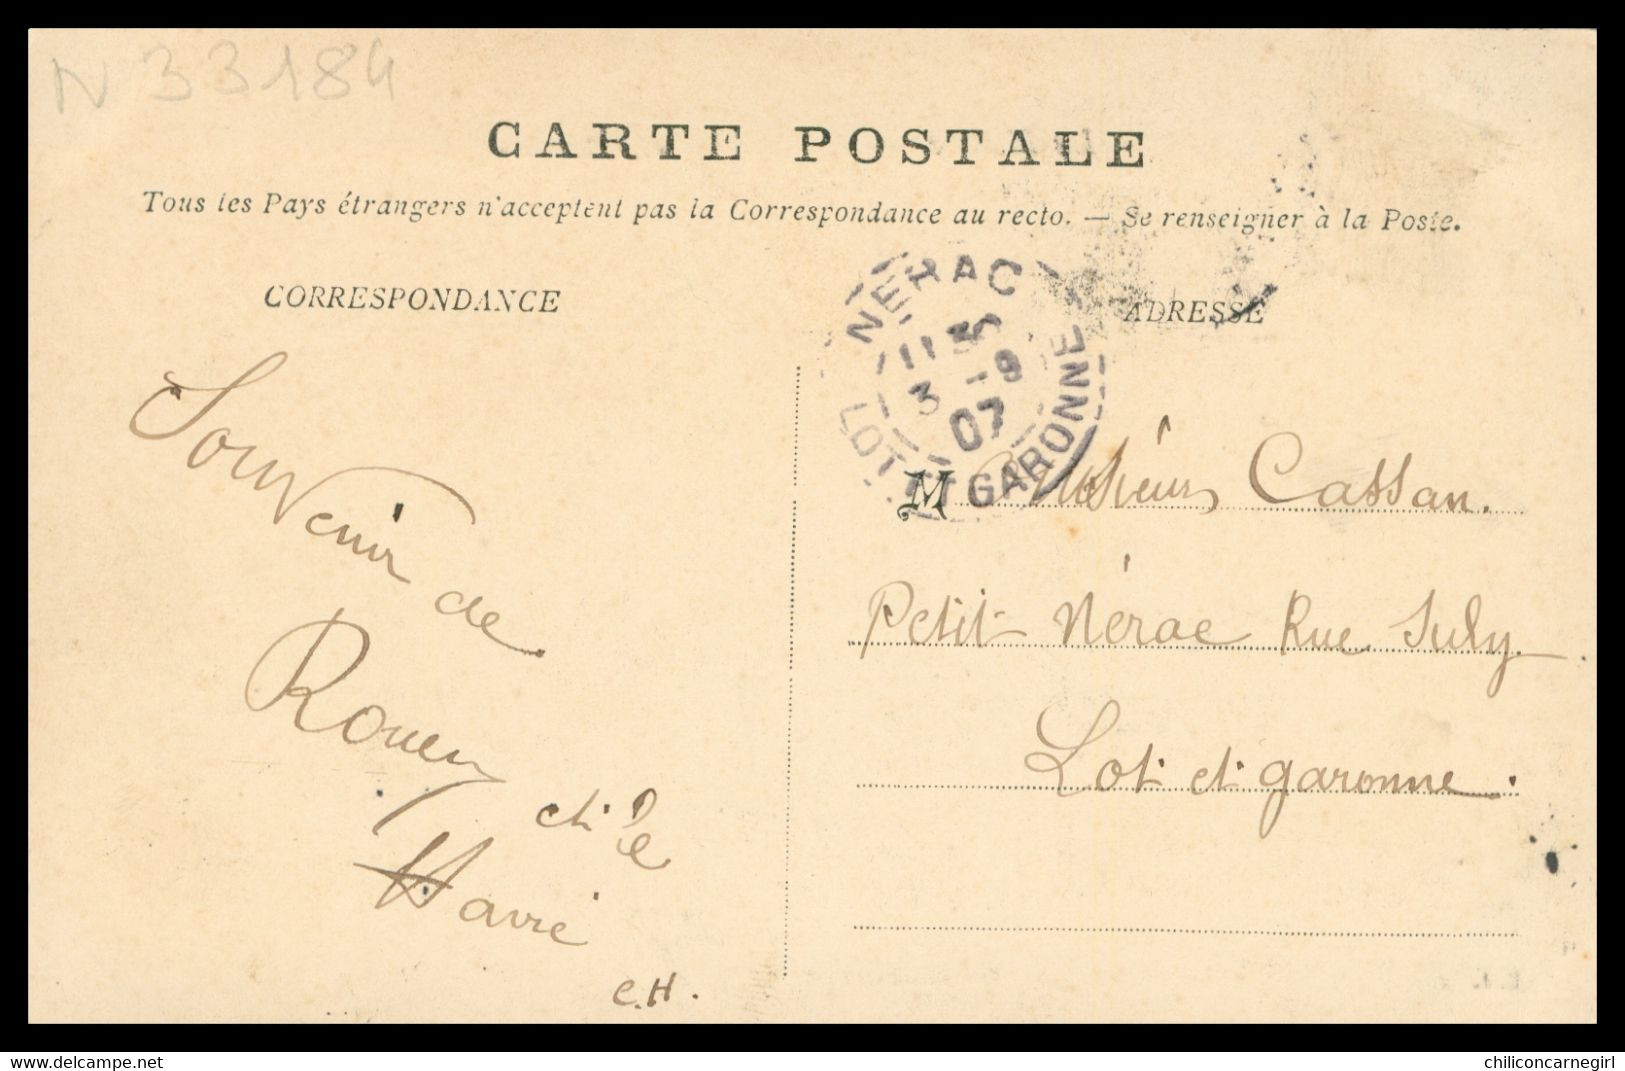 N 33184
CARTE POSTALE
Tous les Pays étrangers n'acceptent pas la Correspondance au recto. — Se renseigner à la Poste.
CORRESPONDANCE
ADRESSE
NERAC
11 35
3 -9
07
LOT ET GARONNE
Souvenir de
Rouen
et le
Havre
C.H.
M Cassan.
Petit Nérac Rue Sully
Lot et garonne.
delcampe.net
chiliconcarnegirl